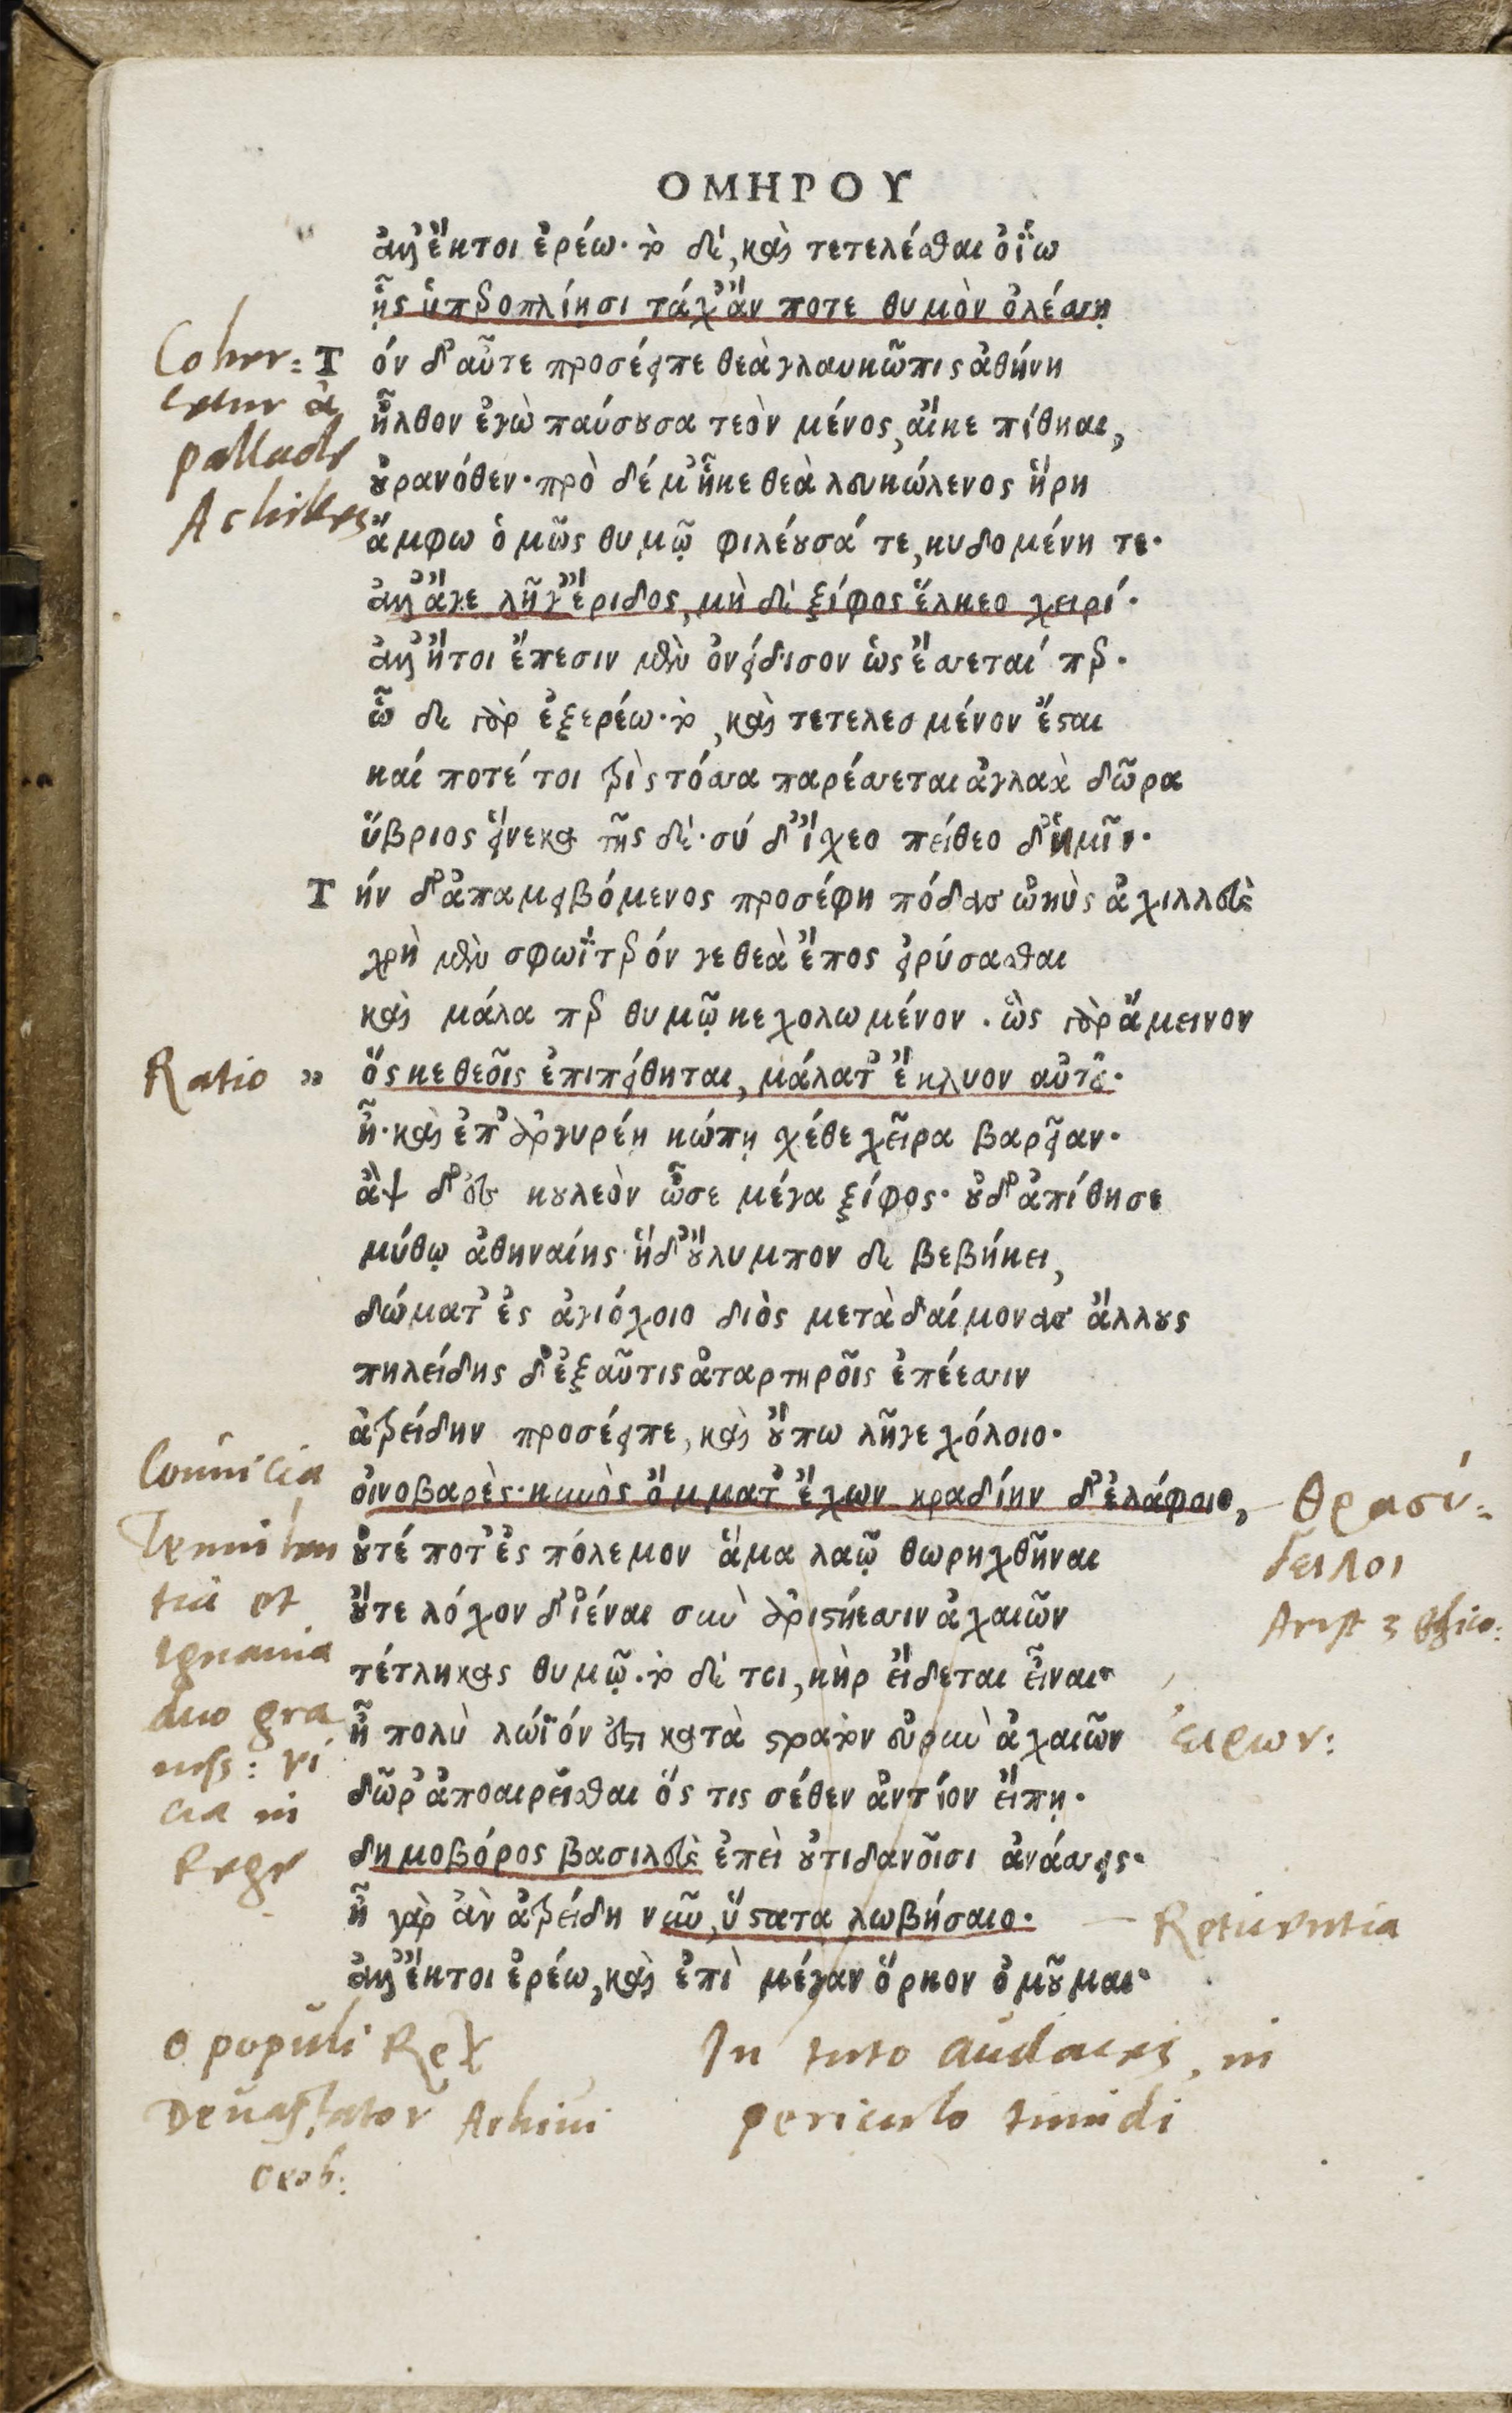 ΟΜΗΡΟΥ
ἀλλ' ἔκ τοι ἐρέω· τὸ δὲ, καὶ τετελέσθαι ὀΐω
ᾗς ὑπεροπλίῃσι τάχ' ἄν ποτε θυμὸν ὀλέσσῃ
Τόν δ' αὖτε προσέειπε θεὰ γλαυκῶπις ἀθήνη
ἦλθον ἐγὼ παύσουσα τεὸν μένος, αἴ κε πίθηαι,
οὐρανόθεν· πρὸ δέ μ' ἧκε θεὰ λευκώλενος ἥρη
ἄμφω ὁμῶς θυμῷ φιλέουσά τε, κηδομένη τε·
ἀλλ' ἄγε λῆγ' ἔριδος, μὴ δὲ ξίφος ἕλκεο χειρί·
ἀλλ' ἤτοι ἔπεσιν μὲν ὀνείδισον ὡς ἔσσεταί περ·
ὧδε γὰρ ἐξερέω· τὸ, καὶ τετελεσμένον ἔσται
καί ποτέ τοι τρὶς τόσσα παρέσσεται ἀγλαὰ δῶρα
ὕβριος εἵνεκα τῆς δὲ· σύ δ' ἴσχεο πείθεο δ' ἡμῖν·
Τήν δ' ἀπαμειβόμενος προσέφη πόδας ὠκὺς ἀχιλλεὺς
χρὴ μὲν σφωΐτερόν γε θεὰ ἔπος εἰρύσασθαι
καὶ μάλα περ θυμῷ κεχολωμένον. ὣς γὰρ ἄμεινον
ὅς κε θεοῖς ἐπιπείθηται, μάλα τ' ἔκλυον αὐτοῦ·
ἦ· καὶ ἐπ' ἀργυρέῃ κώπῃ σχέθε χεῖρα βαρεῖαν·
ἂψ δ' ἐς κουλεὸν ὦσε μέγα ξίφος· οὐδ' ἀπίθησε
μύθῳ ἀθηναίης· ἡ δ' οὔλυμπον δὲ βεβήκει,
δώματ' ἐς αἰγιόχοιο διὸς μετὰ δαίμονας ἄλλους
πηλείδης δ' ἐξαῦτις ἀταρτηροῖς ἐπέεσσιν
ἀτρείδην προσέειπε, καὶ οὔπω λῆγε χόλοιο·
οἰνοβαρὲς· κυνὸς ὄμματ' ἔχων κραδίην δ' ἐλάφοιο,
οὐτέ ποτ' ἐς πόλεμον ἅμα λαῷ θωρηχθῆναι
οὔτε λόχον δ' ἰέναι σὺν ἀριστήεσσιν ἀχαιῶν
τέτληκας θυμῷ· τὸ δέ τοι, κὴρ εἴδεται εἶναι·
ἦ πολὺ λώϊόν ἐστι κατὰ στρατὸν εὐρὺν ἀχαιῶν
δῶρ' ἀποαιρεῖσθαι ὅς τις σέθεν ἀντίον εἴπῃ·
δημοβόρος βασιλεὺς ἐπεὶ οὐτιδανοῖσι ἀνάσσεις·
ἦ γὰρ ἂν ἀτρείδη νῦν, ὕστατα λωβήσαιο·
ἀλλ' ἔκ τοι ἐρέω, καὶ ἐπὶ μέγαν ὅρκον ὀμοῦμαι·
Coher=
cetur à
pallade
Achilles
Ratio "
Conuicia
Temulen
tia et
ignauia
duo gra
uiss: vi
cia in
Rege
θρασύ=
δειλοι
Arist 3 Ethico:
εἴρων:
Reticentia
O populi Rex
Deuastator Achiui
In tuto audaces, in
periculo timidi